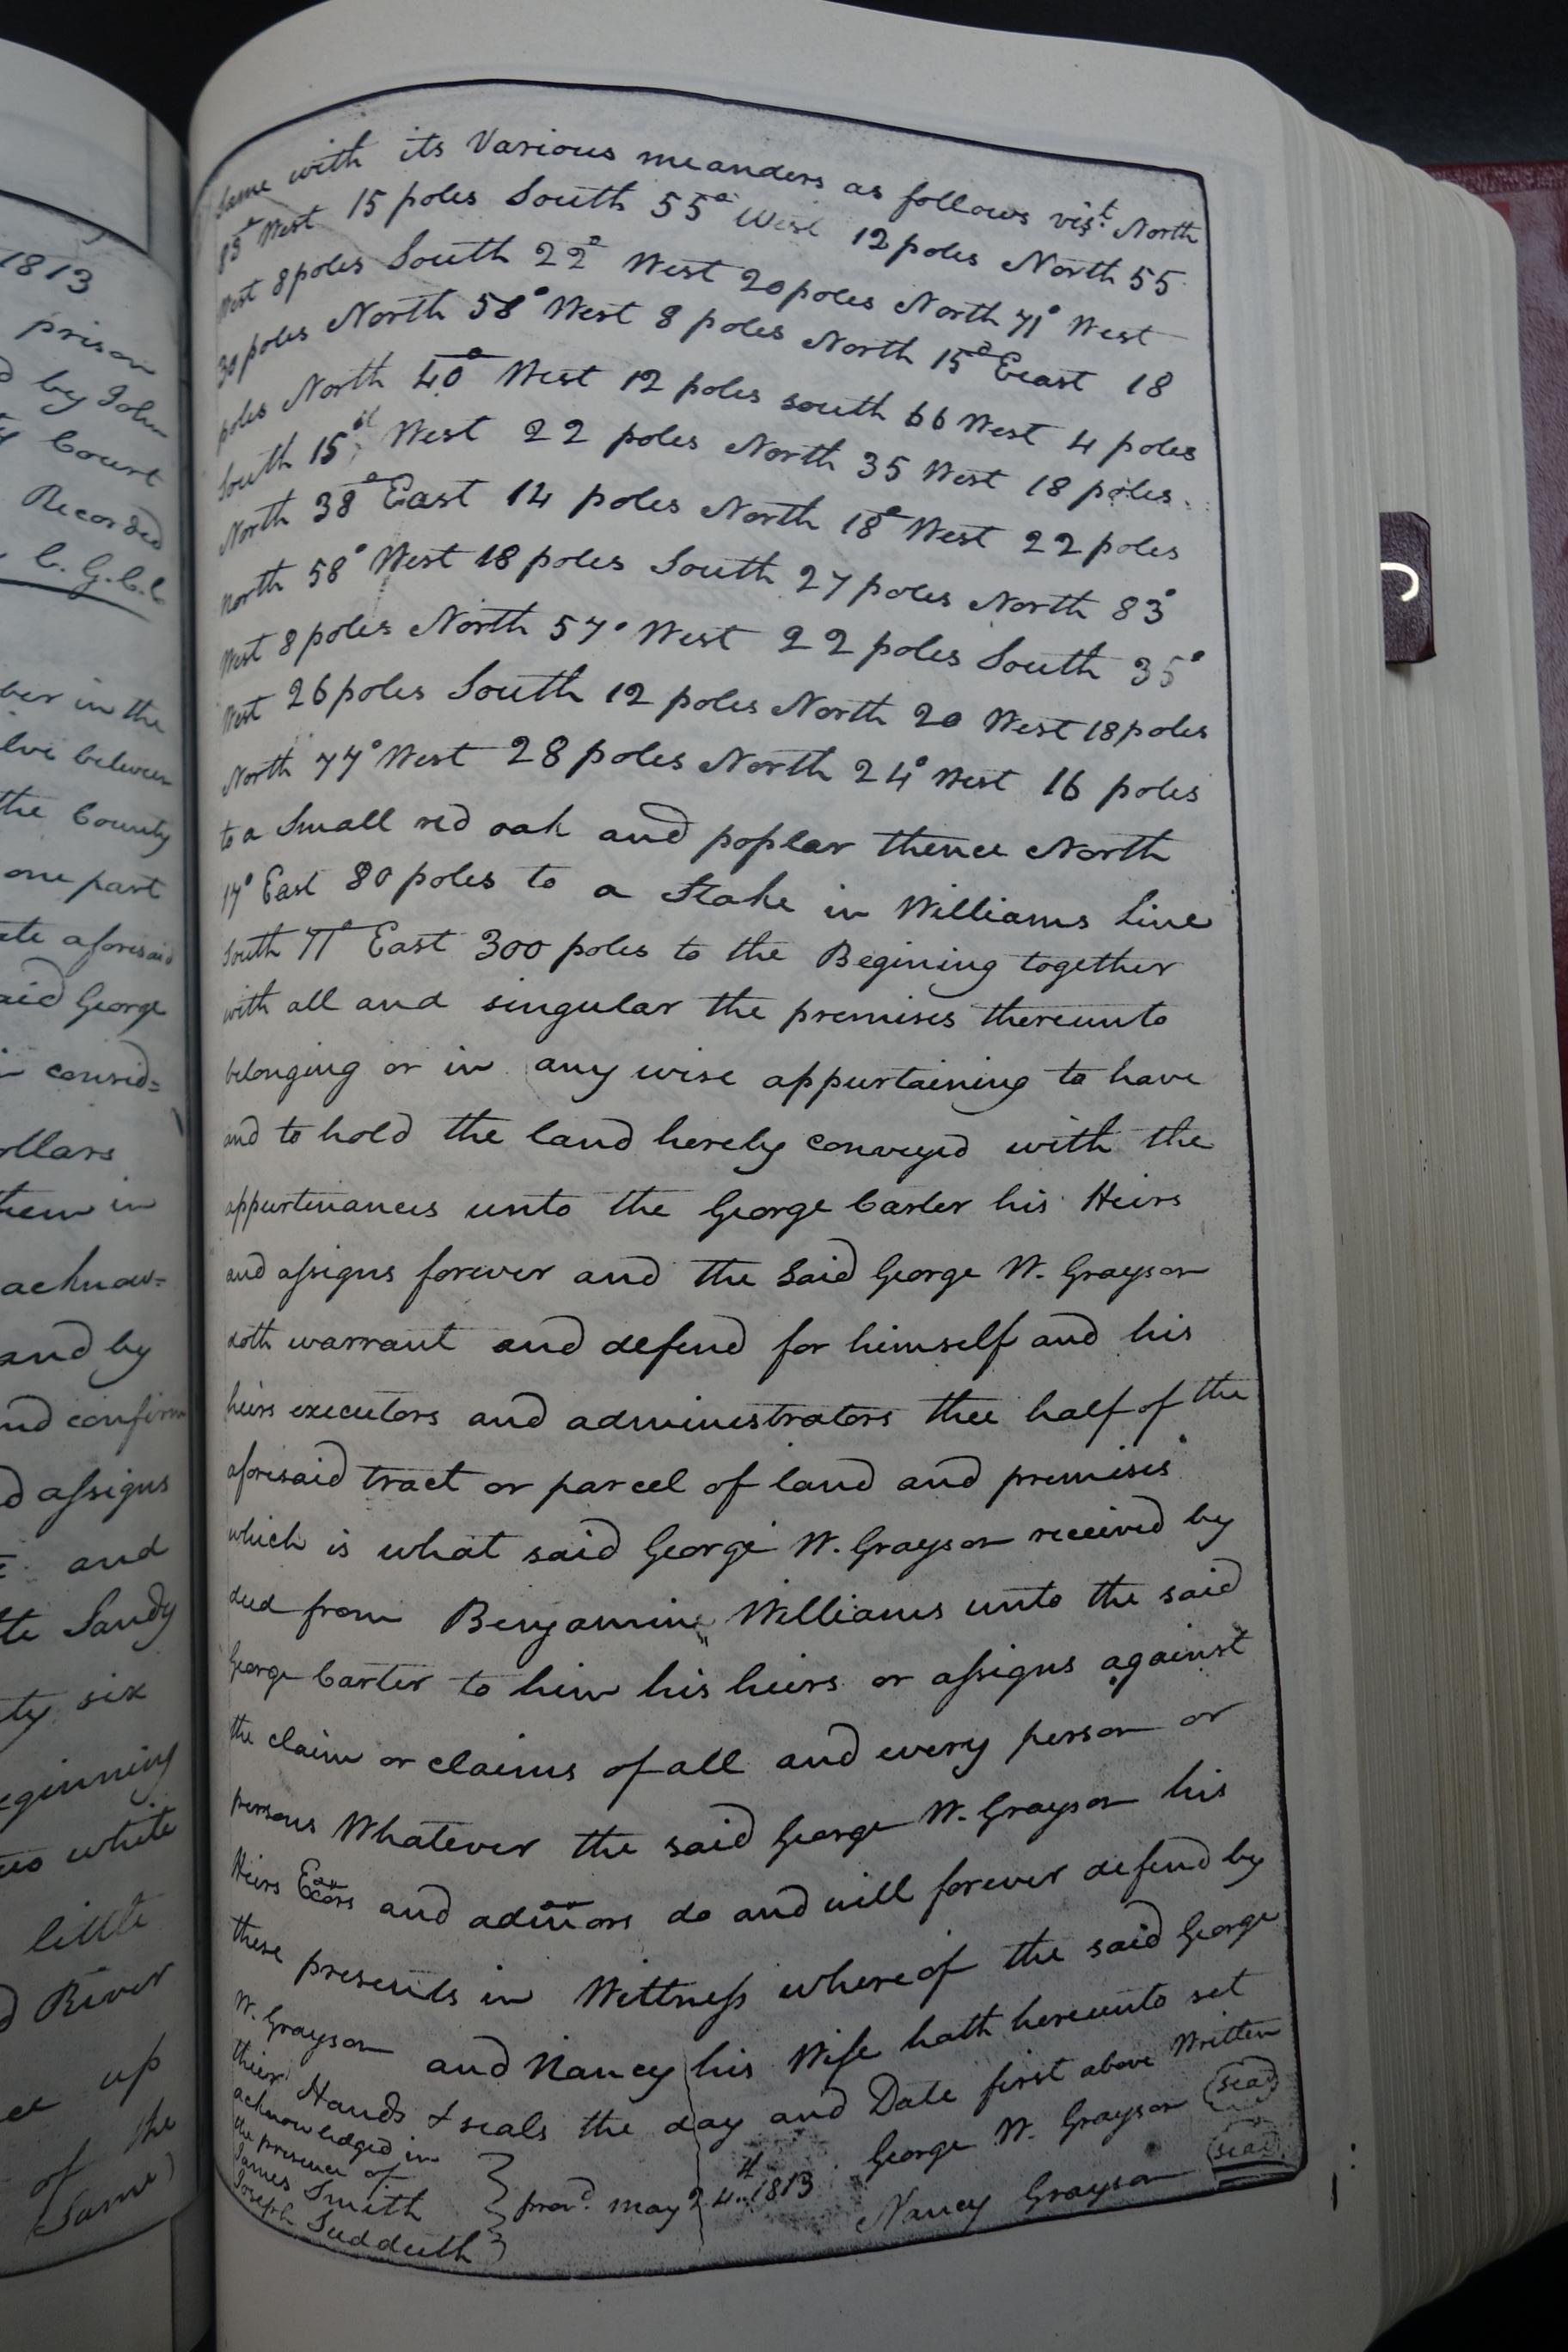 1813
prison
by John
Court
Recorded
C. G. C. C
ber in the
lve between
the County
one part
ate aforesaid
aid George
consid=
ollars
them in
acknow=
and by
nd confirm
d assigns
and
tte Sandy
ty six
eginning
white
little
d River
up
of the
Same
Same with its Various meanders as follows vist. North
83° West 15 poles South 55° West 12 poles North 55
West 8 poles South 22° West 20 poles North 71° West
30 poles North 58° West 8 poles North 15° Eeast 18
poles North 40° West 12 poles south 66 West 4 poles
South 15d West 22 poles North 35 West 18 poles.
North 38° East 14 poles North 18° West 22 poles
north 58° West 18 poles South 27 poles North 83°
West 8 poles North 57° West 22 poles South 35°
West 26 poles South 12 poles North 20 West 18 poles
North 77° West 28 poles North 24° West 16 poles
to a Small red oak and poplar thence North
17° East 80 poles to a Stake in Williams Line
South 71° East 300 poles to the Begining together
with all and singular the premises thereunto
belonging or in any wise appurtaining to have
and to hold the land hereby conveyed with the
appurtinances unto the George Carter his Heirs
and assigns forever and the Said George W. Grayson
doth warrant and defend for himself and his
heirs executors and administrators thee half of the
aforesaid tract or parcel of land and premises
which is what said George W. Grayson received by
deed from Benjamine Williams unto the said
George Carter to him his heirs or assigns against
the claim or claims of all and every person or
persons Whatever the said George W. Grayson his
Heirs Exors and admors do and will forever defend by
these presents in Wittness whereof the said George
W. Grayson and Nancy his Wife hath hereunto set
their Hands & seals the day and Date first above Written
acknowledged in
the presence of
James Smith
Joseph Suddeth
provd. may 24th 1813
George W. Grayson (seal)
Nancy Grayson (seal)